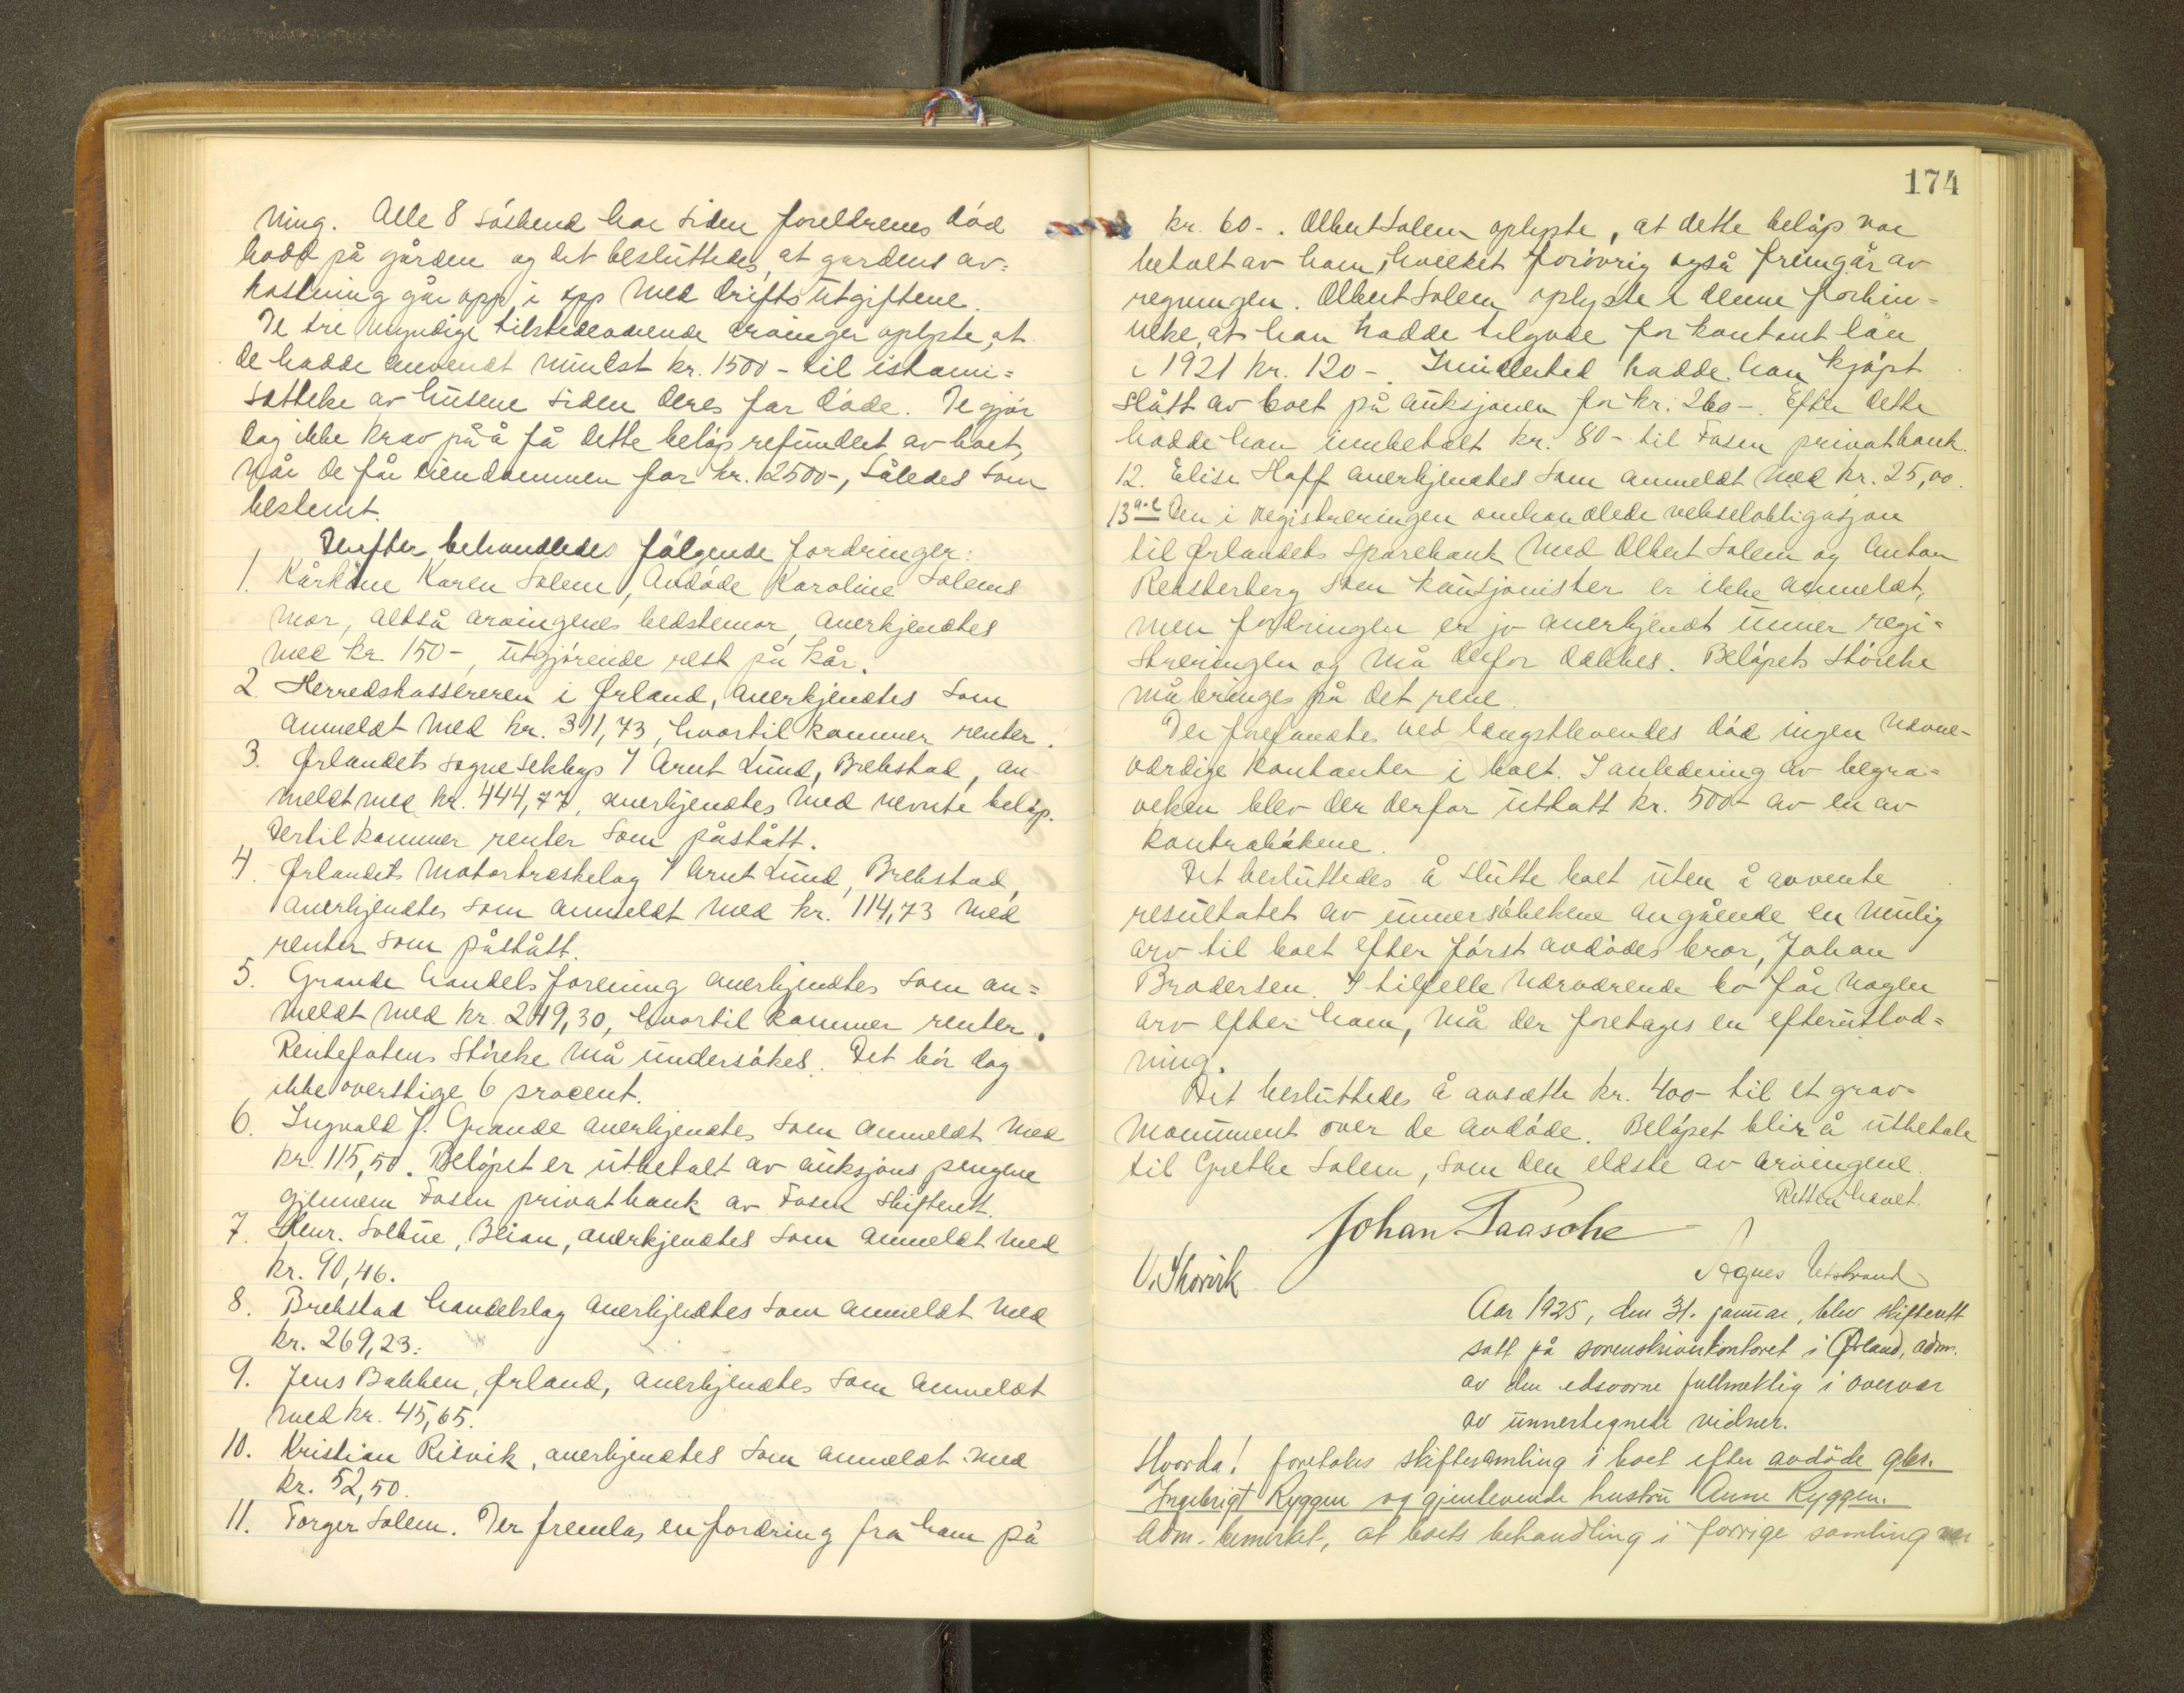 ning. Alle 8 söskend har siden foreldrenes död
bodd på gården og det besluttedes, at gårdens av=
kastning går opp i opp med driftsutgiftene.
De tre myndige tilstedeværende arvinger oplyste, at
de hadde anvendt minst kr. 1500- til istann=
sættelse av husene siden deres far döde. De gjör
dog ikke krav på å få dette belöp refundert av boet,
når de får eiendommen for kr. 12500-, således som
bestemt.
Derefter behandledes fölgende fordringer:
1. Kårkone Karen Solem, avdöde Karoline Solems
mor, altså arvingenes bedstemor, anerkjendtes
med kr. 150-, utgjörende rest på kår.
2. Herredskassereren i Ørland, anerkjendtes som
anmeldt med kr. 311,73, hvortil kommer renter.
3. Ørlandets sogneselskap v/ Arnt Lund, Brekstad, an-
meldt med kr. 444,77, anerkjendtes med nevnte belöp.
Dertil kommer renter som påstått.
4. Ørlandets motortreskelag v/ Arnt Lund, Brekstad,
anerkjendtes som anmeldt med kr. 114,73 med
renter som påstått.
5. Grande handelsforening anerkjendtes som an=
meldt med kr. 249,30, hvortil kommer renter.
Rentefotens störelse må undersökes. Det bör dog
ikke overstige 6 procent.
6. Ingvald J. Grande anerkjendtes som anmeldt med
kr. 115,50. Belöpet er utbetalt av auksjonspengene
gjennem Fosen privatbank av Fosen skifterett.
7. Henr. Solbue, Bjian, anerkjendtes som anmeldt med
kr. 90,46.
8. Brekstad handelslag anerkjendtes som anmeldt med
kr. 269,23.
9. Jens Bakken, Ørland, anerkjendtes som anmeldt
med kr. 45,65.
10. Kristian Risvik, anerkjendtes som anmeldt med
kr. 52,50.
11. Torger Solem. Der fremlas en fordring fra ham på
174
kr. 60-. Albert Solem oplyste, at dette belöp var
betalt av ham, hvilket forövrig også fremgår av
regningen. Albert Solem oplyste i denne forbin=
delse, at han hadde tilgode for kontant lån
i 1921 kr. 120-. Imidlertid hadde han kjöpt
slått av boet på auksjonen for kr. 260-. Efter dette
hadde han innbetalt kr. 80- til Fosen privatbank.
12. Elise Hoff anerkjendtes som anmeldt med kr. 25,00.
13. Den i registreringen omhandlede vekselobligasjon
til Ørlandets sparebank med Albert Solem og Anton
Reksterberg som kausjonister er ikke anmeldt,
men fordringen er jo anerkjendt unner regi=
streringen og må derfor dækkes. Belöpets störelse
må bringes på det rene.
Der forefandtes ved længstlevendes död ingen nævne-
værdige kontanter i boet. I anledning av begra=
velsen blev der derfor uttatt kr. 500- av en av
kontrabökene.
Det besluttedes å slutte boet uten å avvente
resultatet av unnersökelsene angående en mulig
arv til boet efter först avdödes bror, Johan
Brodersen. I tilfelle nærværende bo får nogen
arv efter ham, må der foretages en efterutlod=
ning.
Det besluttedes å avsætte kr. 400- til et grav=
monument over de avdöde. Belöpet blir å utbetale
til Grethe Solem, som den eldste av arvingene.
Retten hævet.
Johan Paasche
O. Skorvik
Agnes Utstrand
Aar 1925, den 31. januar, blev skifterett
satt på sorenskriverkontoret i Ørland, adm.
av den edsvorne fullmektig i overvær
av unnertegnede vidner.
Hvorda! foretokes skiftesamling i boet efter avdöde gbr.
Ingebrigt Ryggen og gjenlevende hustru Anne Ryggen.
Adm. bemerket, at boets behandling i forrige samling var